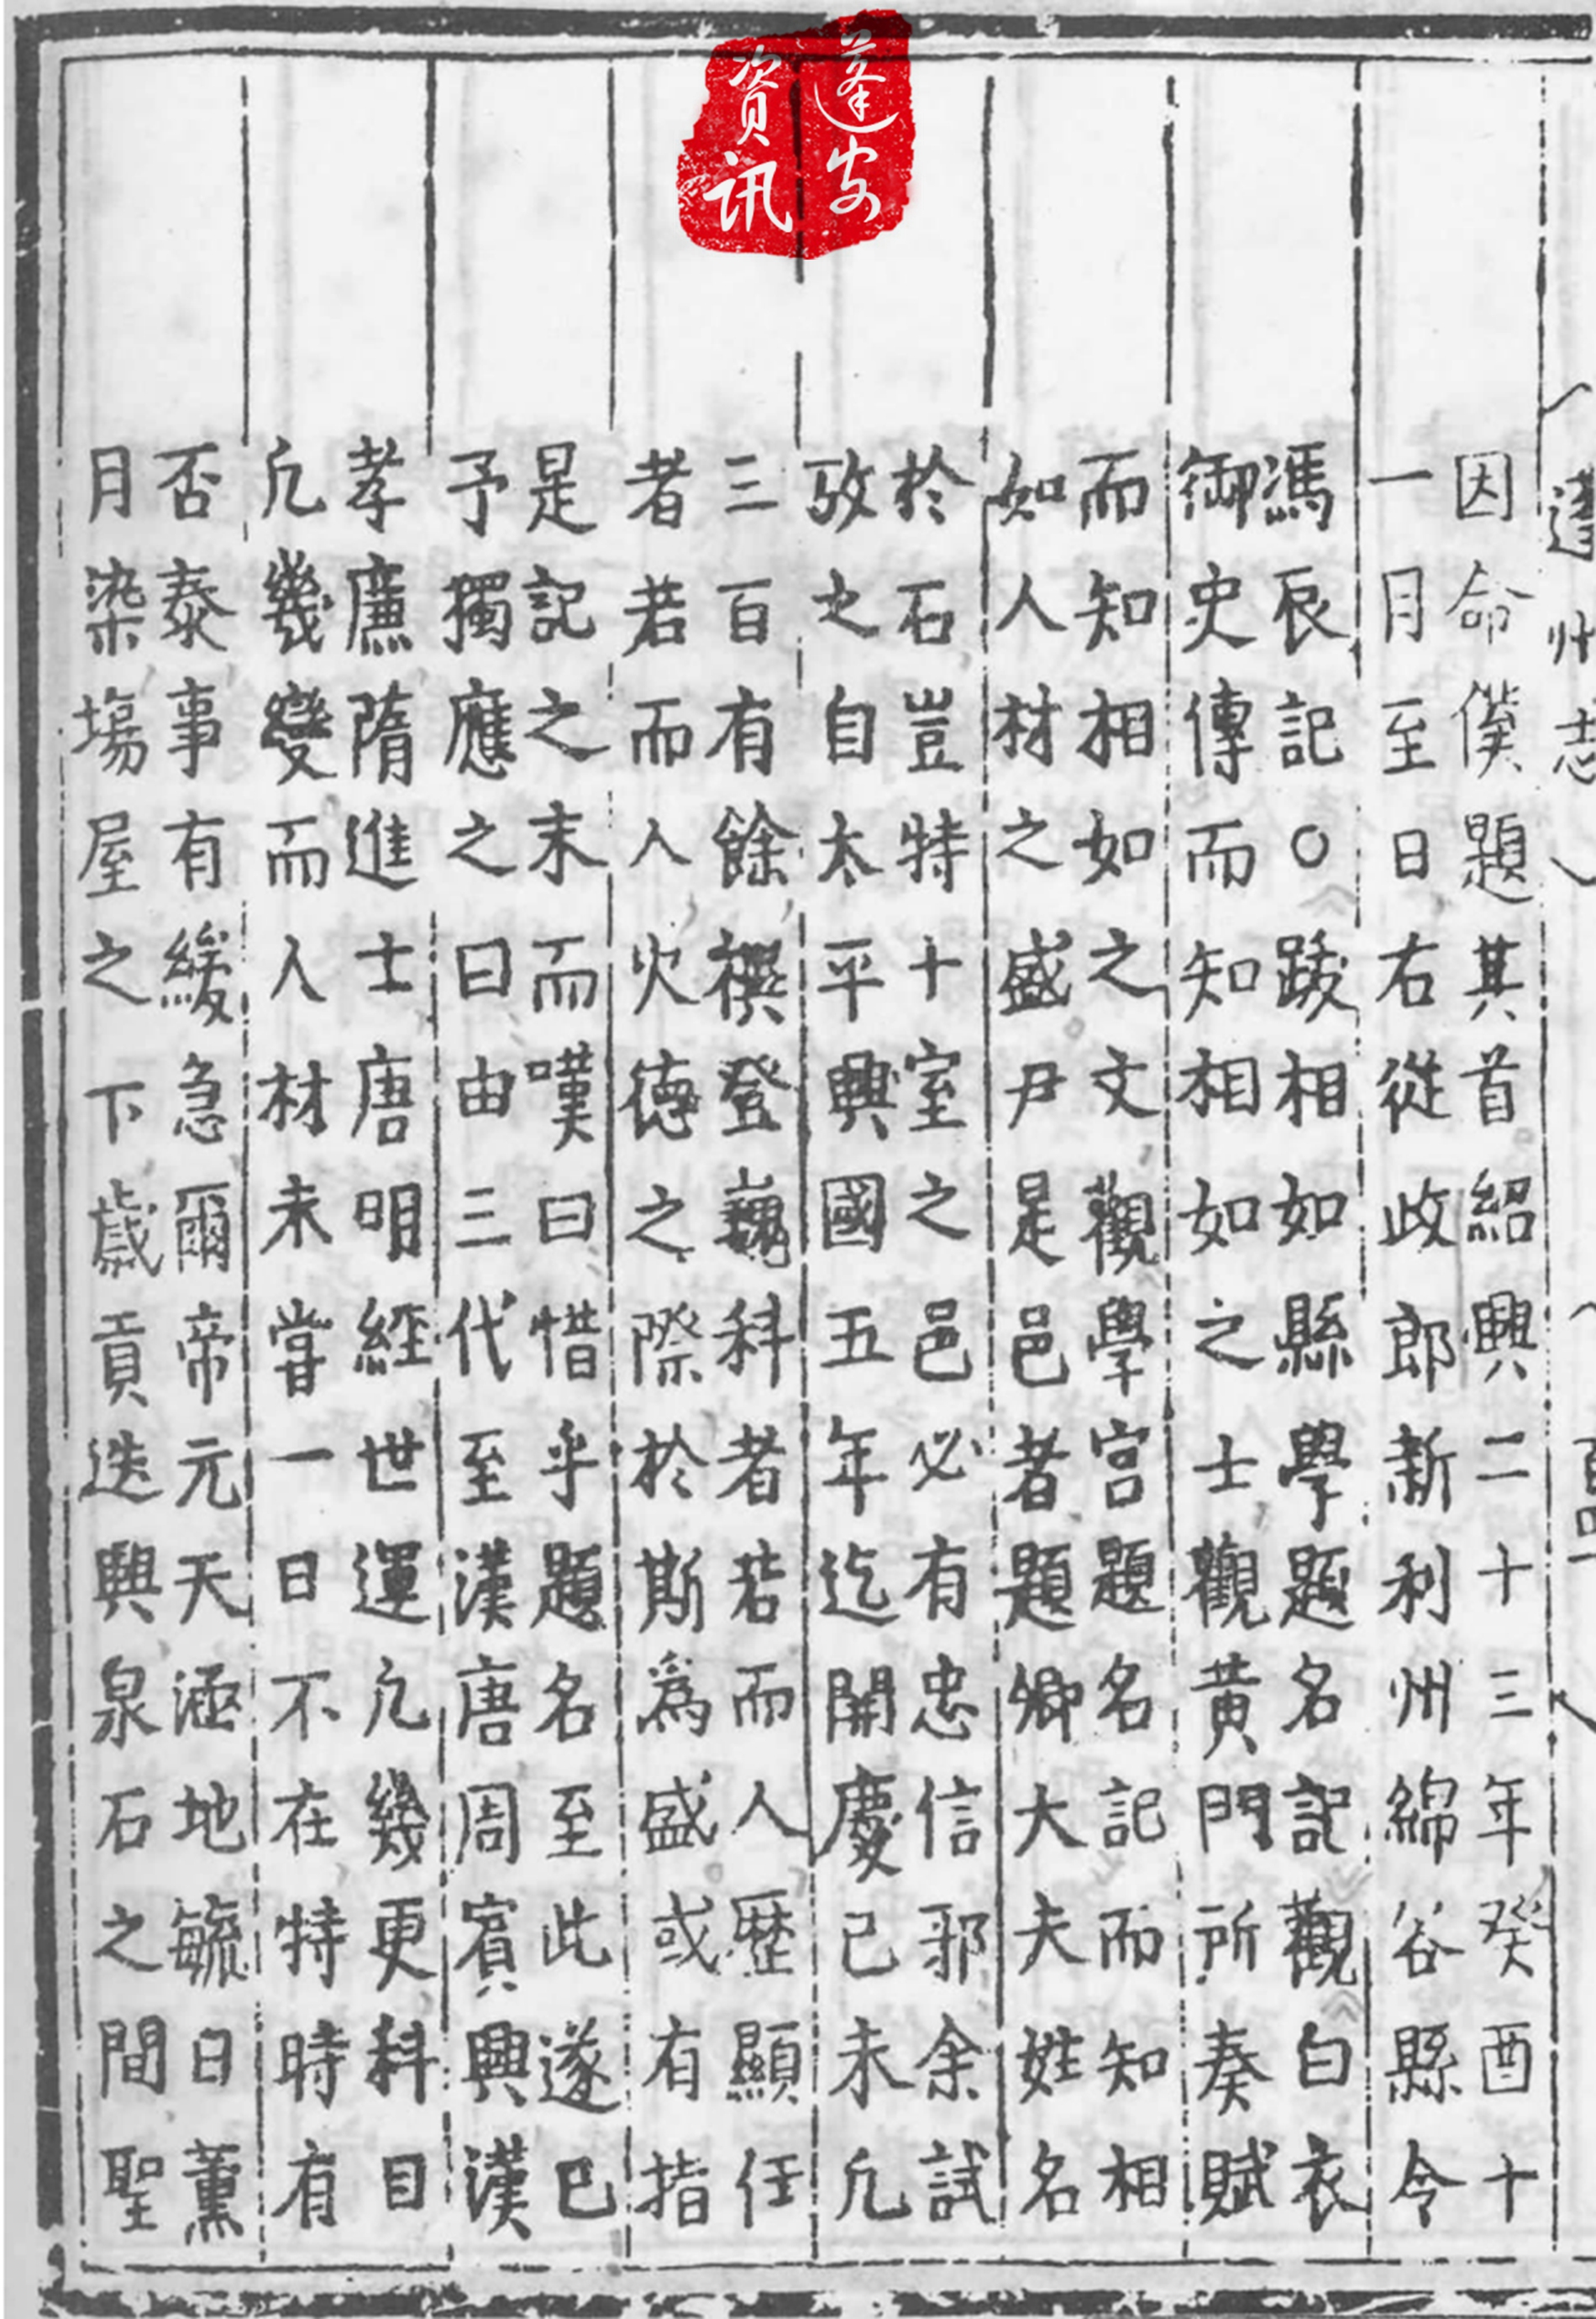 蓬安
資訊
州志
因命僕題其首紹興二十三年癸酉十
一月至日右從政郎新利州綿谷縣令
馮辰記○跋相如縣學題名記觀白衣
御史傳而知相如之士觀黃門所奏賦
而知相如之文觀學宮題名記而知相
如人材之盛尹是邑者題卿大夫姓名
於石豈特十室之邑必有忠信邪余試
攷之自太平興國五年迄開慶己未凢
三百有餘禩登巍科者若而人歷顯任
者若而人火德之際於斯爲盛或有指
是記之末而嘆曰惜乎題名至此遂已
予獨應之曰由三代至漢唐周賓興漢
孝廉隋進士唐明經世運凢幾更科目
凢幾變而人材未嘗一日不在特時有
否泰事有緩急爾帝元天涵地毓日薰
月染塲屋之下歲貢迭興泉石之間聖